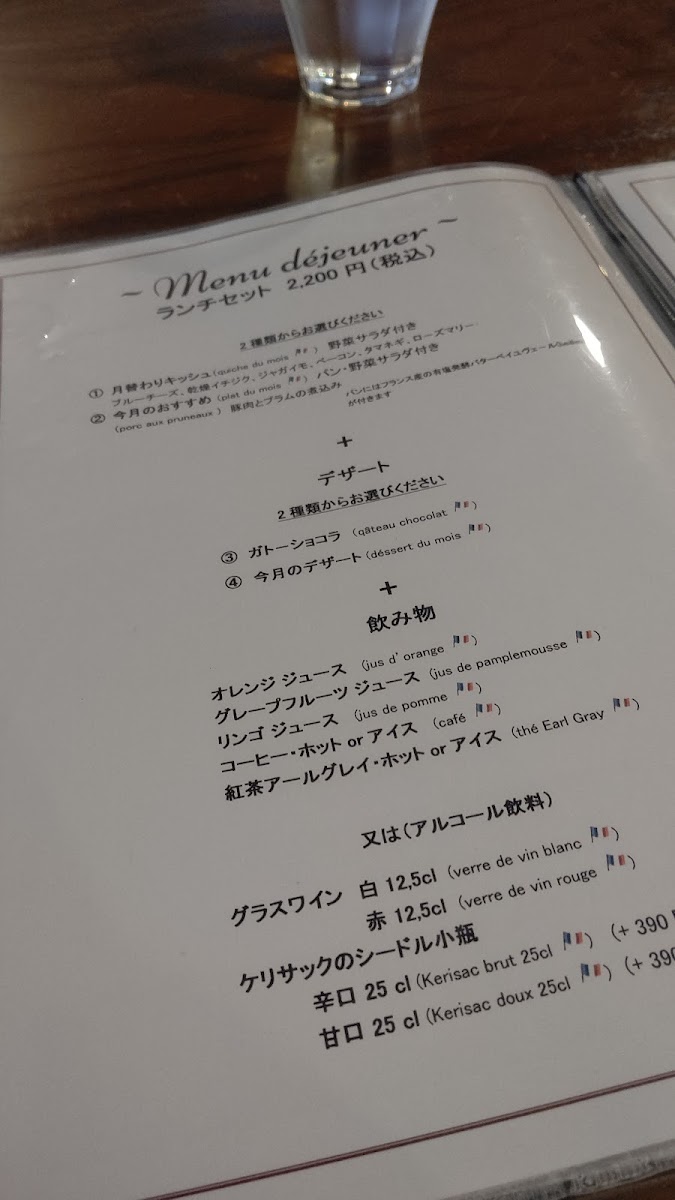 ~ Menu déjeuner ~
ランチセット 2,200 円(税込)
2種類からお選びください
① 月替わりキッシュ(quiche du mois ) 野菜サラダ付き
ブルーチーズ、乾燥イチジク、ジャガイモ、ベーコン、タマネギ、ローズマリー
② 今月のおすすめ (plat du mois ) パン・野菜サラダ付き
(porc aux pruneaux ) 豚肉とプラムの煮込み
パンにはフランス産の有塩発酵バターペイユヴェール
が付きます
+
デザート
2種類からお選びください
③ ガトーショコラ (qâteau chocolat )
④ 今月のデザート (déssert du mois )
+
飲み物
オレンジ ジュース (jus d' orange )
グレープフルーツ ジュース (jus de pamplemousse )
リンゴ ジュース (jus de pomme )
コーヒー・ホット or アイス (café )
紅茶アールグレイ・ホット or アイス (thé Earl Gray )
又は(アルコール飲料)
グラスワイン 白 12,5cl (verre de vin blanc )
赤 12,5cl (verre de vin rouge )
ケリサックのシードル小瓶
辛口 25 cl (Kerisac brut 25cl ) (+ 390
甘口 25 cl (Kerisac doux 25cl ) (+ 390